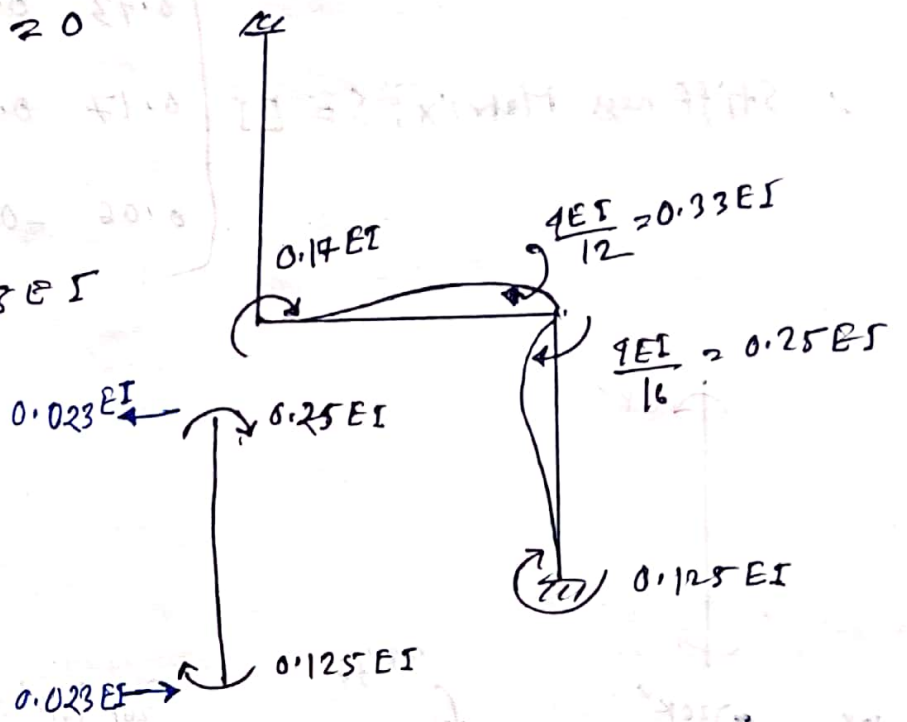 20
0.17 EI
4EI/12 = 0.33EI
EI
4EI/16 = 0.25EI
0.023EI
0.25 EI
0.125 EI
0.125 EI
0.023EI